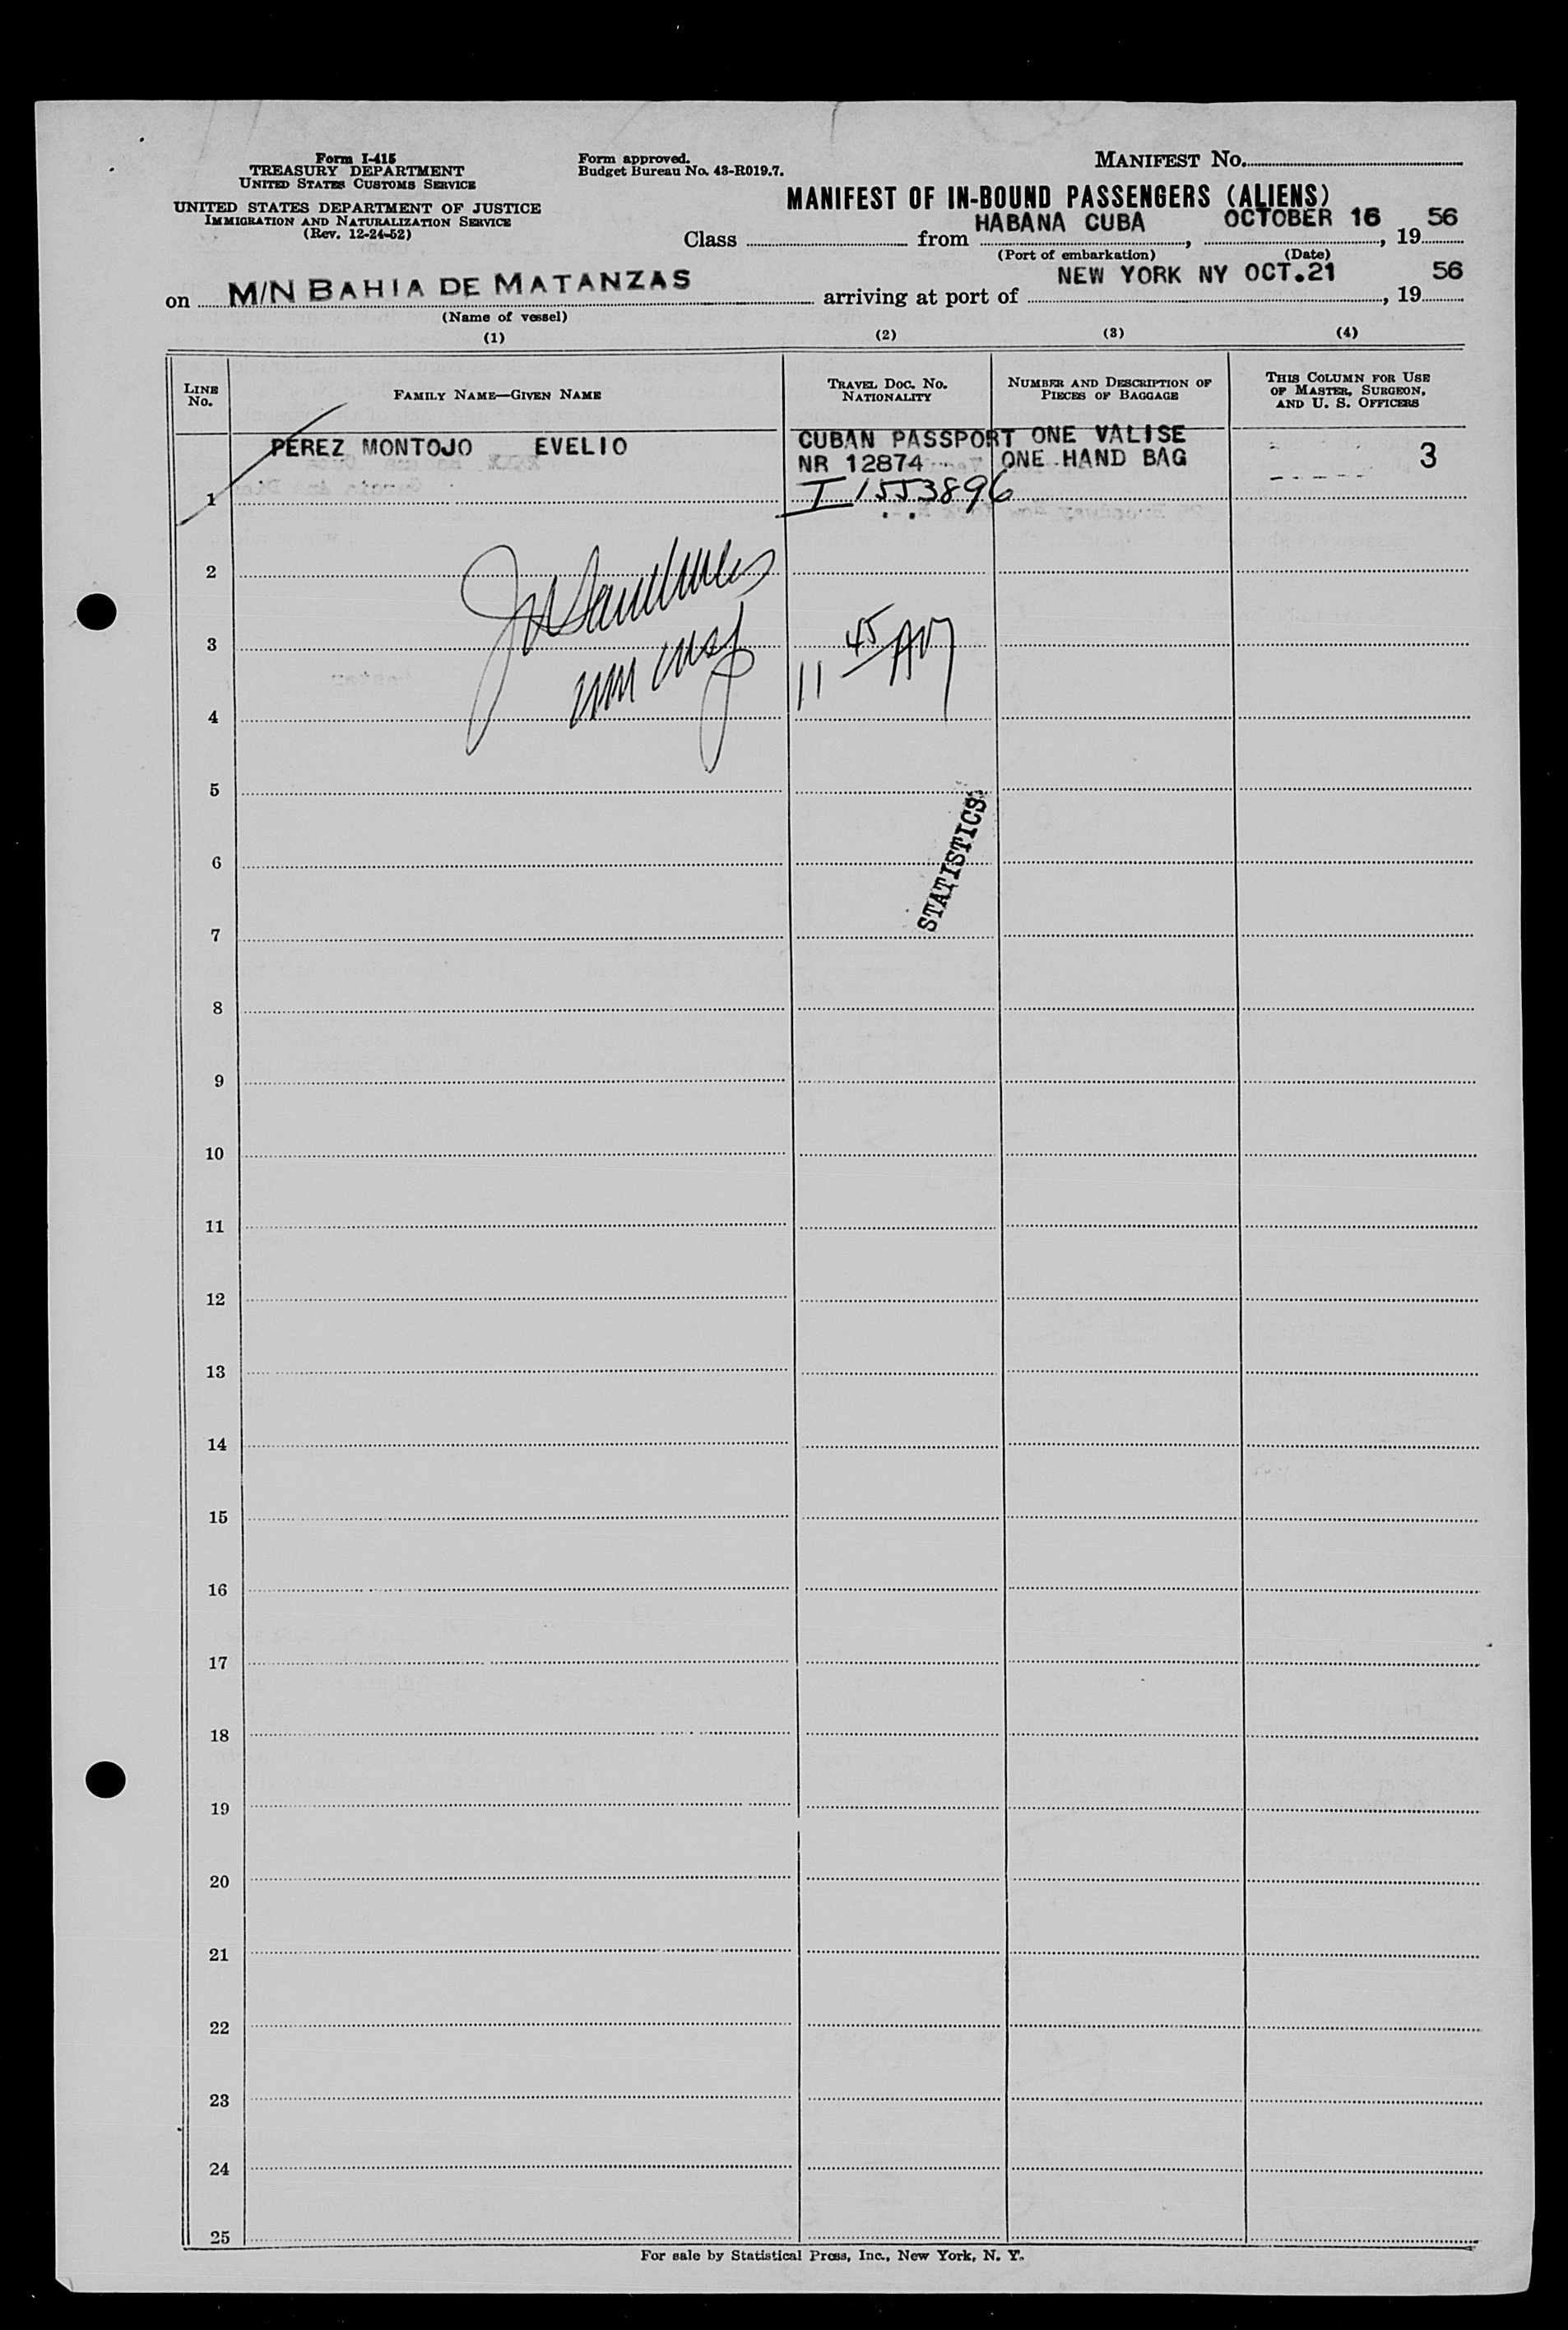 Form I-415
TREASURY DEPARTMENT
UNITED STATES CUSTOMS SERVICE
UNITED STATES DEPARTMENT OF JUSTICE
IMMIGRATION AND NATURALIZATION SERVICE
(Rev. 12-24-52)
Form approved.
Budget Bureau No. 43-R019.7.
MANIFEST NO.
MANIFEST OF IN-BOUND PASSENGERS (ALIENS)
Class from HABANA CUBA, OCTOBER 16, 19 56
(Port of embarkation) (Date)
on M/N BAHIA DE MATANZAS arriving at port of NEW YORK NY OCT.21, 19 56
(Name of vessel)
(1) (2) (3) (4)
LINE NO. FAMILY NAME—GIVEN NAME TRAVEL DOC. NO. NATIONALITY NUMBER AND DESCRIPTION OF PIECES OF BAGGAGE THIS COLUMN FOR USE OF MASTER, SURGEON, AND U. S. OFFICERS
PEREZ MONTOJO EVELIO CUBAN PASSPORT ONE VALISE
NR 12874 ONE HAND BAG 3
1 I 1553896
2
3 11 45 AM
4
5
6 STATISTICS
7
8
9
10
11
12
13
14
15
16
17
18
19
20
21
22
23
24
25
For sale by Statistical Press, Inc., New York, N. Y.